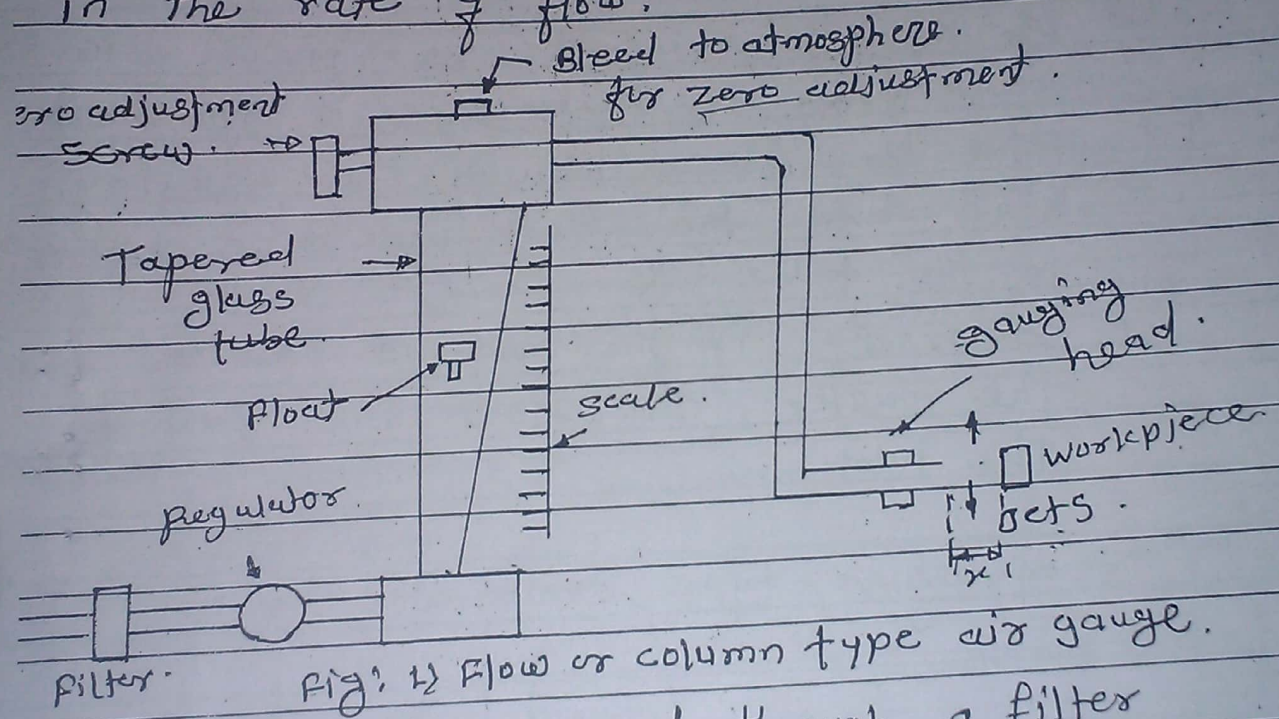 in the rate of flow.
Bleed to atmosphere.
for zero adjustment.
ero adjustment
screw.
Tapered
glass
tube.
Float
scale.
gauging
head.
workpiece
Jets.
x
Regulator.
Filter.
Fig: 1} Flow or column type air gauge.
filter